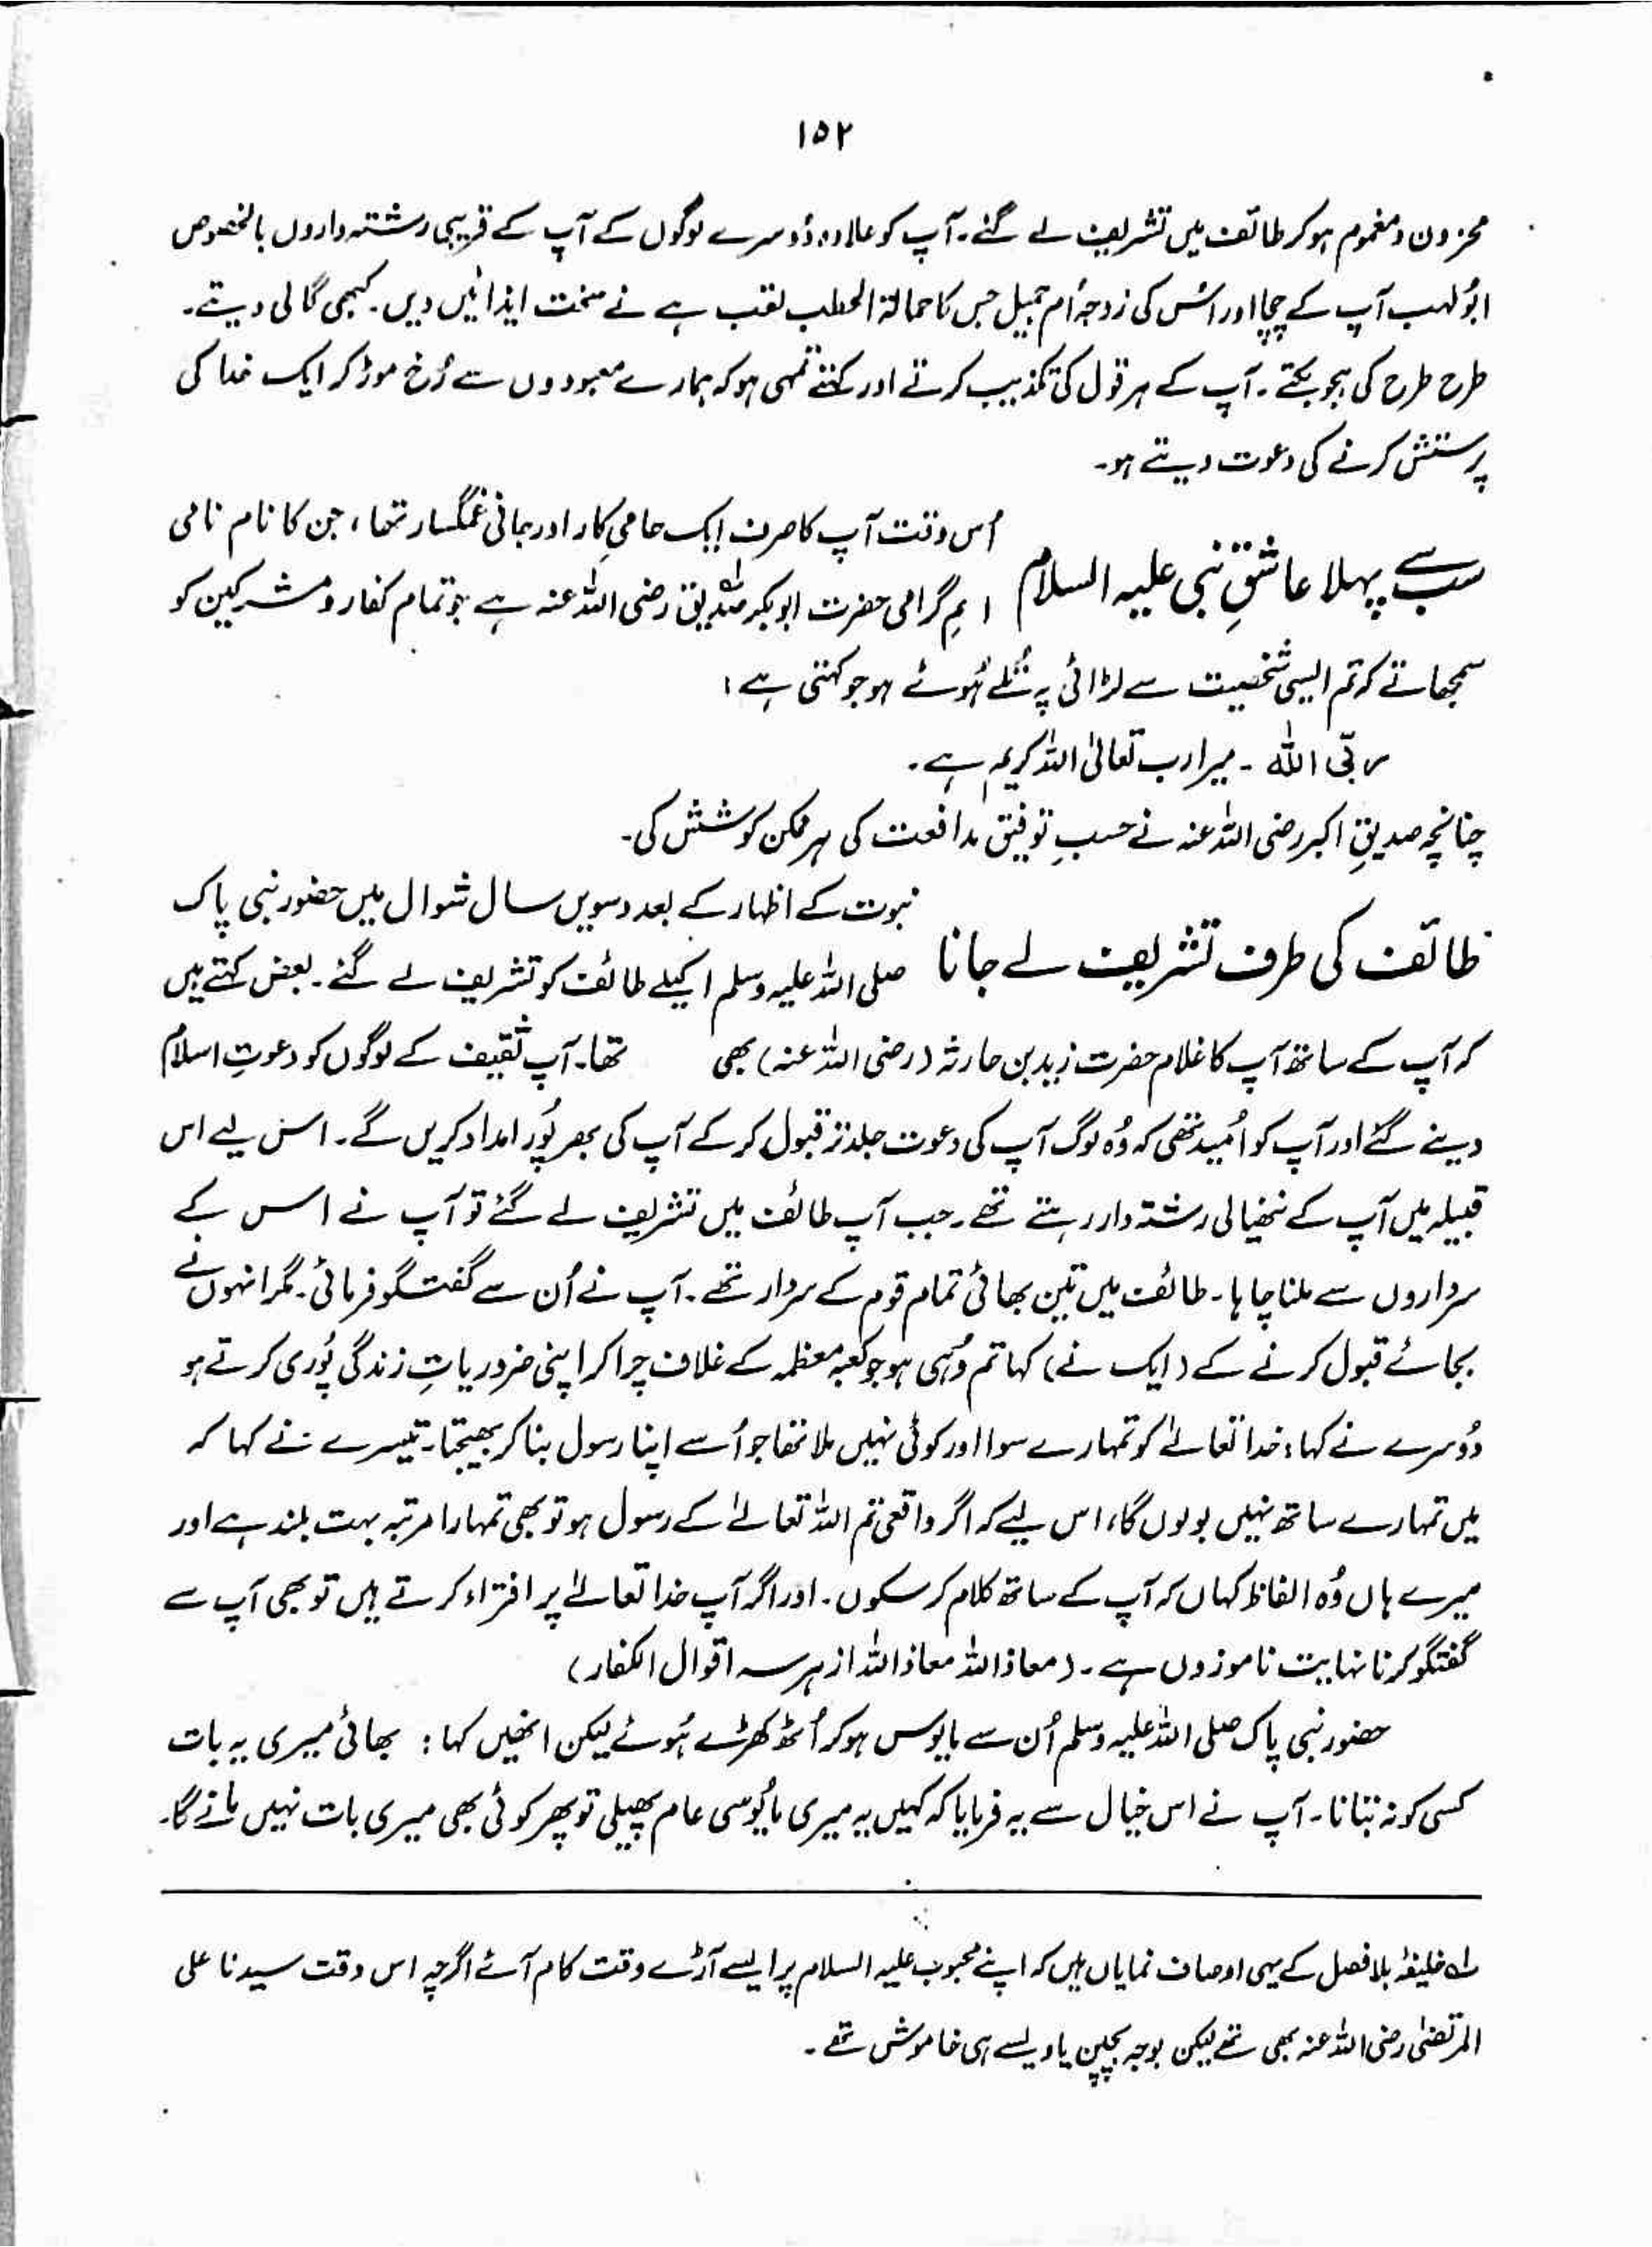 ۱۵۲
محزون ومغموم ہوکر طائف میں تشریف لے گئے۔ آپ کو علاوہ دُوسرے لوگوں کے آپ کے قریبی رشتہ داروں بالخصوص
ابُولہب آپ کے چچا اور اُس کی زوجہ اُم جمیل جس کا حمالۃ الحطب لقب ہے نے سخت ایذائیں دیں۔ کبھی گالی دیتے۔
طرح طرح کی ہجو بکتے۔ آپ کے ہر قول کی تکذیب کرتے اور کہتے تمہی ہو کہ ہمارے معبودوں سے رُخ موڑ کر ایک خدا کی
پرستش کرنے کی دعوت دیتے ہو۔
سب سے پہلا عاشقِ نبی علیہ السلام
اُس وقت آپ کا صرف ایک حامیِ کار اور جانی غمگسار تھا، جن کا نام نامی
اسمِ گرامی حضرت ابوبکر صدیق رضی اللہ عنہ ہے جو تمام کفار و مشرکین کو
سمجھاتے کہ تم ایسی شخصیت سے لڑائی پہ تُلے ہُوئے ہو جو کہتی ہے:
ربّی اللہ ۔ میرا رب تعالیٰ اللہ کریم ہے۔
چنانچہ صدیقِ اکبر رضی اللہ عنہ نے حسبِ توفیق مدافعت کی ہر ممکن کوشش کی۔
طائف کی طرف تشریف لے جانا
نبوت کے اظہار کے بعد دسویں سال شوال میں حضور نبی پاک
صلی اللہ علیہ وسلم اکیلے طائف کو تشریف لے گئے۔ بعض کہتے ہیں
کہ آپ کے ساتھ آپ کا غلام حضرت زید بن حارثہ (رضی اللہ عنہ) بھی تھا۔ آپ ثقیف کے لوگوں کو دعوتِ اسلام
دینے گئے اور آپ کو اُمید تھی کہ وُہ لوگ آپ کی دعوت جلد تر قبول کر کے آپ کی بھرپُور امداد کریں گے۔ اس لیے اس
قبیلہ میں آپ کے ننھیالی رشتہ دار رہتے تھے۔ جب آپ طائف میں تشریف لے گئے تو آپ نے اس کے
سرداروں سے ملنا چاہا۔ طائف میں تین بھائی تمام قوم کے سردار تھے۔ آپ نے اُن سے گفتگو فرمائی۔ مگر انہوں نے
بجائے قبول کرنے کے (ایک نے) کہا تم وُہی ہو جو کعبہ معظمہ کے غلاف چرا کر اپنی ضروریاتِ زندگی پُوری کرتے ہو
دُوسرے نے کہا: خدا تعالےٰ کو تمہارے سوا اور کوئی نہیں ملا تھا جو اُسے اپنا رسول بنا کر بھیجتا۔ تیسرے نے کہا کہ
میں تمہارے ساتھ نہیں بولوں گا، اس لیے کہ اگر واقعی تم اللہ تعالےٰ کے رسول ہو تو بھی تمہارا مرتبہ بہت بلند ہے اور
میرے ہاں وُہ الفاظ کہاں کہ آپ کے ساتھ کلام کر سکوں۔ اور اگر آپ خدا تعالےٰ پر افتراء کرتے ہیں تو بھی آپ سے
گفتگو کرنا نہایت ناموزوں ہے۔ (معاذ اللہ معاذ اللہ از ہر سہ اقوال الکفار)
حضور نبی پاک صلی اللہ علیہ وسلم اُن سے مایوس ہو کر اُٹھ کھڑے ہُوئے لیکن انھیں کہا: بھائی میری یہ بات
کسی کو نہ بتانا۔ آپ نے اس خیال سے یہ فرمایا کہ کہیں یہ میری مایُوسی عام پھیلی تو پھر کوئی بھی میری بات نہیں مانے گا۔
لہ خلیفۂ بلافصل کے یہی اوصاف نمایاں ہیں کہ اپنے محبوب علیہ السلام پر ایسے آڑے وقت کام آئے اگرچہ اس وقت سیدنا علی
المرتضیٰ رضی اللہ عنہ بھی تھے لیکن بوجہ بچپن یا ویسے ہی خاموش تھے۔